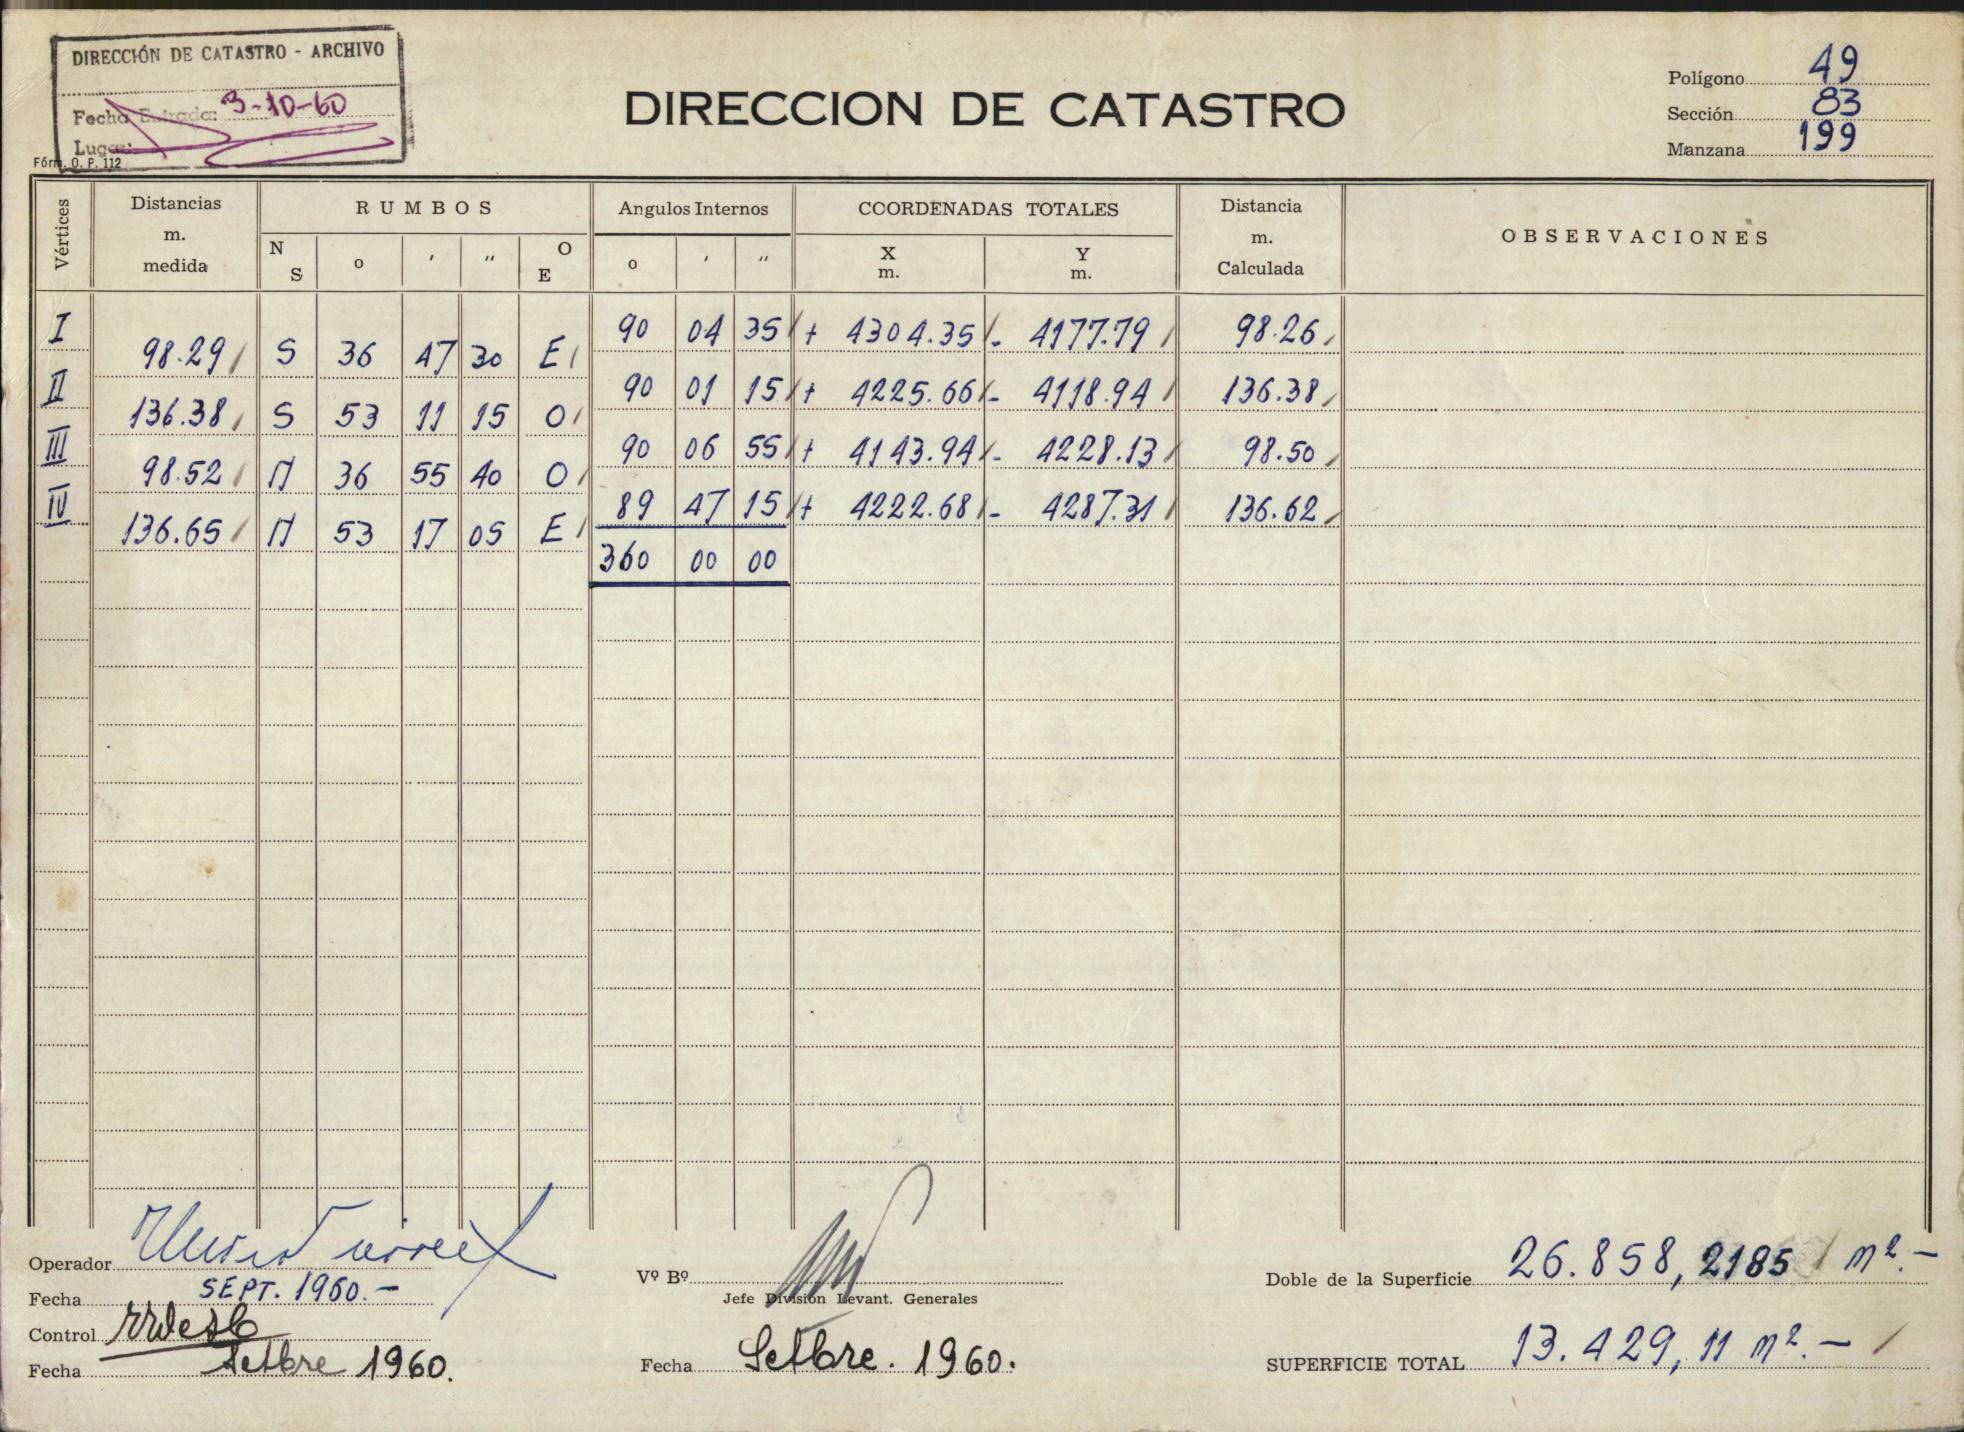 DIRECCIÓN DE CATASTRO - ARCHIVO
Fecha Entrada: 3-10-60
Lugar:
Fórm. O. P. 112
DIRECCION DE CATASTRO
Polígono 49
Sección 83
Manzana 199
Vértices
Distancias m. medida
RUMBOS
N S o ' " O E
Angulos Internos
o ' "
COORDENADAS TOTALES
X m.
Y m.
Distancia m. Calculada
OBSERVACIONES
I 90 04 35 + 4304.35 - 4177.79 98.26
98.29 S 36 47 30 E
II 90 01 15 + 4225.66 - 4118.94 136.38
136.38 S 53 11 15 O
III 90 06 55 + 4143.94 - 4228.13 98.50
98.52 N 36 55 40 O
IV 89 47 15 + 4222.68 - 4287.31 136.62
136.65 N 53 17 05 E
360 00 00
Operador
Fecha SEPT. 1960.-
Control
Fecha Setbre 1960.
Vº Bº
Jefe División Levant. Generales
Fecha Setbre. 1960.
Doble de la Superficie 26.858,2185 m².-
SUPERFICIE TOTAL 13.429,11 m².-